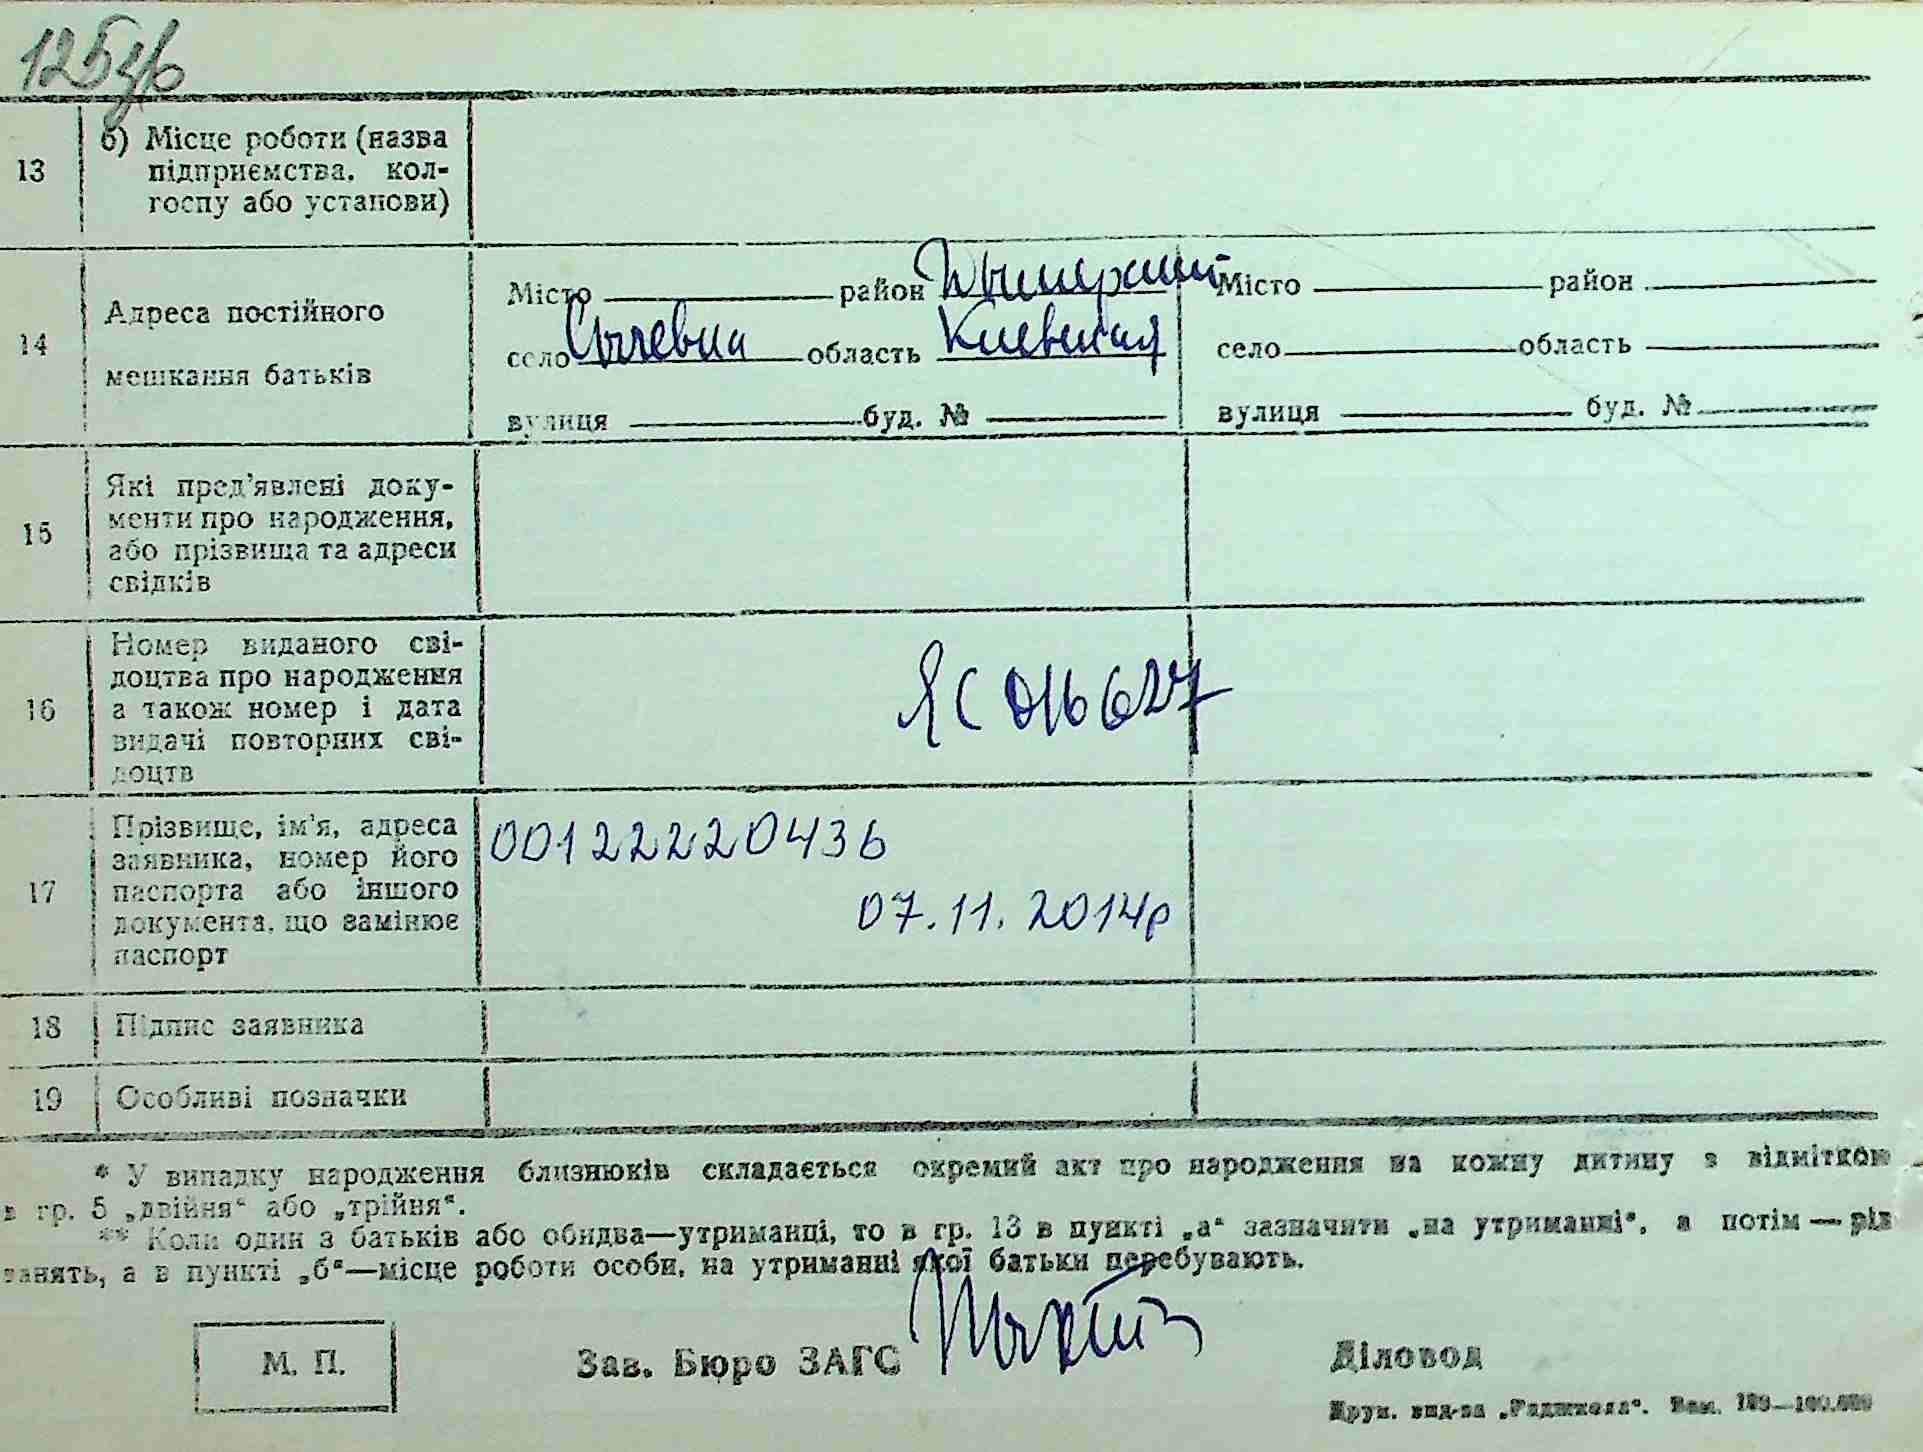 125
13
б) Місце роботи (назва
підприємства, кол-
госпу або установи)
14
Адреса постійного
мешкання батьків
Місто район Дымерский
село область Киевская
вулиця буд. №
Місто район
село область
вулиця буд. №
15
Які пред'явлені доку-
менти про народження,
або прізвища та адреси
свідків
16
Номер виданого сві-
доцтва про народження
а також номер і дата
видачі повторних сві-
доцтв
ЯС 016627
17
Прізвище, ім'я, адреса
заявника, номер його
паспорта або іншого
документа, що замінює
паспорт
00122220436
07.11.2014р
18
Підпис заявника
19
Особливі позначки
* У випадку народження близнюків складається окремий акт про народження на кожну дитину з відміткою
в гр. 5 „двійня“ або „трійня“.
** Коли один з батьків або обидва—утриманці, то в гр. 13 в пункті „а“ зазначити „на утриманні“, а потім — рід
занять, а в пункті „б“—місце роботи особи, на утриманні якої батьки перебувають.
М. П.
Зав. Бюро ЗАГС
Діловод
Друк. вид-ва „Радшкола“. Зам.